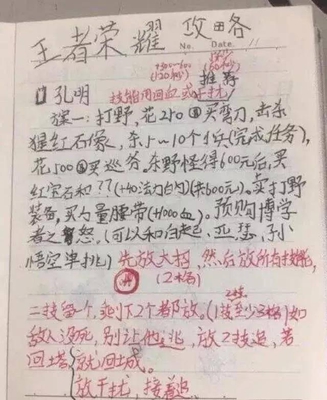 王者荣耀 攻略
No. Date
(120秒) (60秒) 推荐
①孔明 技能用回血或干扰
选一:打野,花250买弯刀,击杀
猩红石像,杀5~10个小兵(完成任务),
花500买巡守。杀野怪得600元后,买
红宝石和??(+40法力白的)(共600元)。卖打野
装备,买力量腰带(+1000血)。预购博学
者之怒。(可以和白起、亚瑟、孙
悟空单挑)先放大招,然后放所有技能,
(2格)
二技留一个,剩下2个都放。(1技到少3格)如
敌人没死,别让他逃,放2技追,若
回塔,就回城。
放干扰,接着追